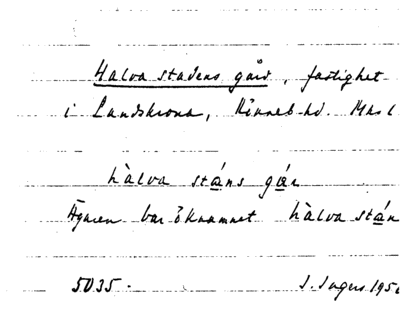 Halva stadens gård, fastighet
i Landskrona, Rönneb. hd. Mhs l
hàlva stáns gár
Ägaren bar öknamnet hàlva stán
5035. I. Ingers 195